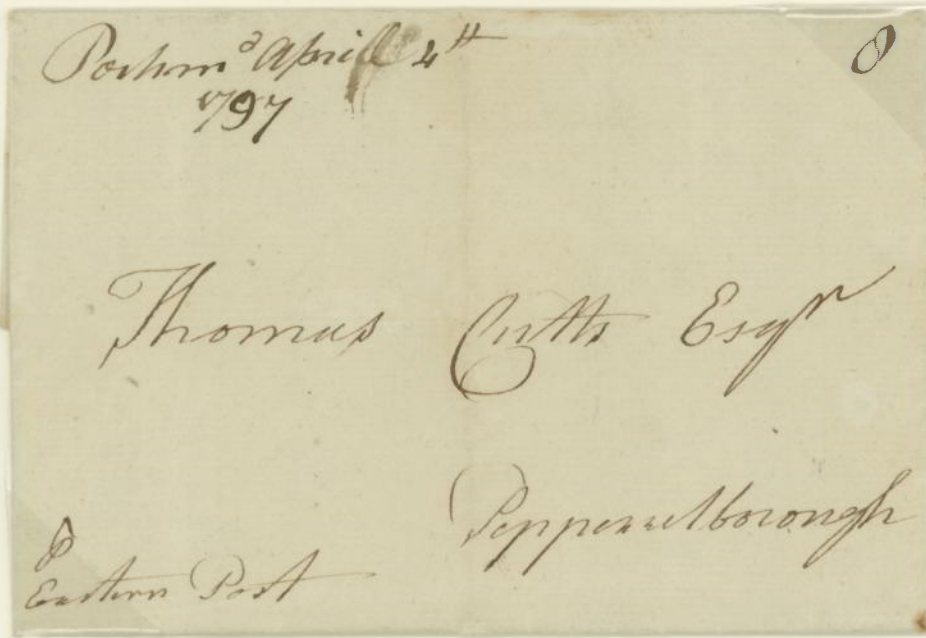 Portsmº April 4th
1797
8
Thomas Cutts Esqr
Pepperrelborough
P
Eastern Post